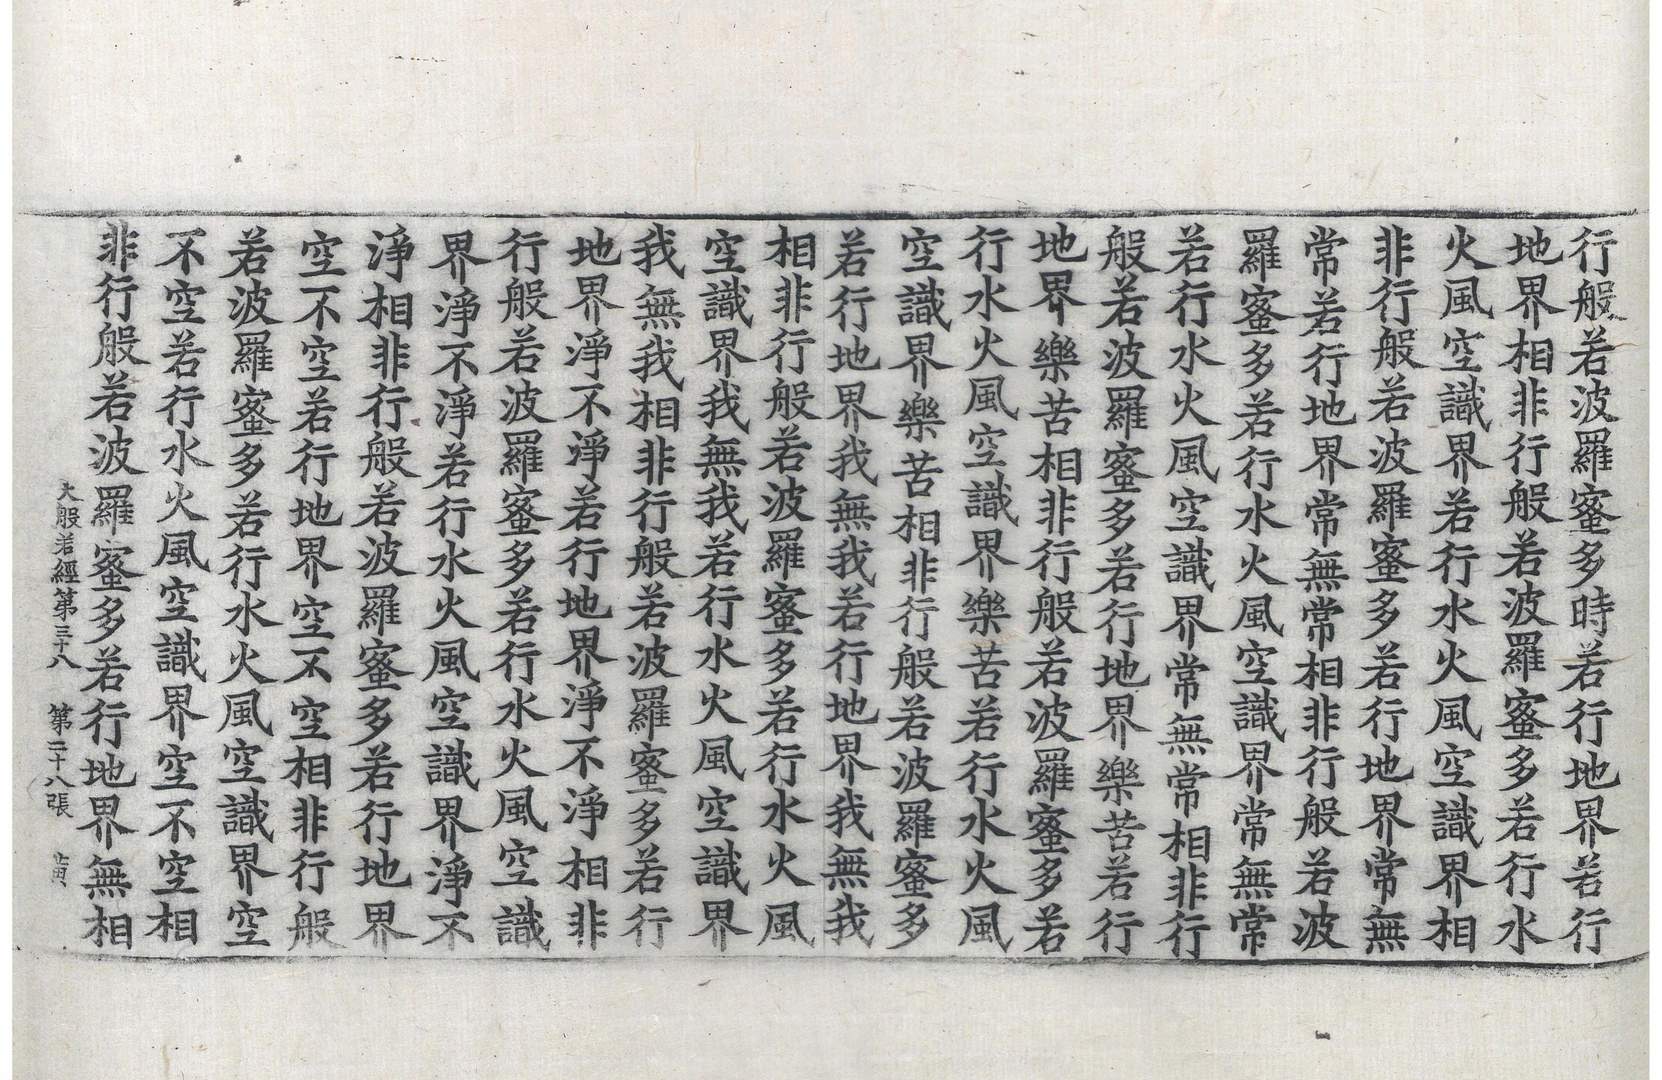 行般若波羅蜜多時若行地界若行
地界相非行般若波羅蜜多若行水
火風空識界若行水火風空識界相
非行般若波羅蜜多若行地界常無
常若行地界常無常相非行般若波
羅蜜多若行水火風空識界常無常
若行水火風空識界常無常相非行
般若波羅蜜多若行地界樂苦若行
地界樂苦相非行般若波羅蜜多若
行水火風空識界樂苦若行水火風
空識界樂苦相非行般若波羅蜜多
若行地界我無我若行地界我無我
相非行般若波羅蜜多若行水火風
空識界我無我若行水火風空識界
我無我相非行般若波羅蜜多若行
地界淨不淨若行地界淨不淨相非
行般若波羅蜜多若行水火風空識
界淨不淨若行水火風空識界淨不
淨相非行般若波羅蜜多若行地界
空不空若行地界空不空相非行般
若波羅蜜多若行水火風空識界空
不空若行水火風空識界空不空相
非行般若波羅蜜多若行地界無相
大般若經第三十八 第二十八張 黃